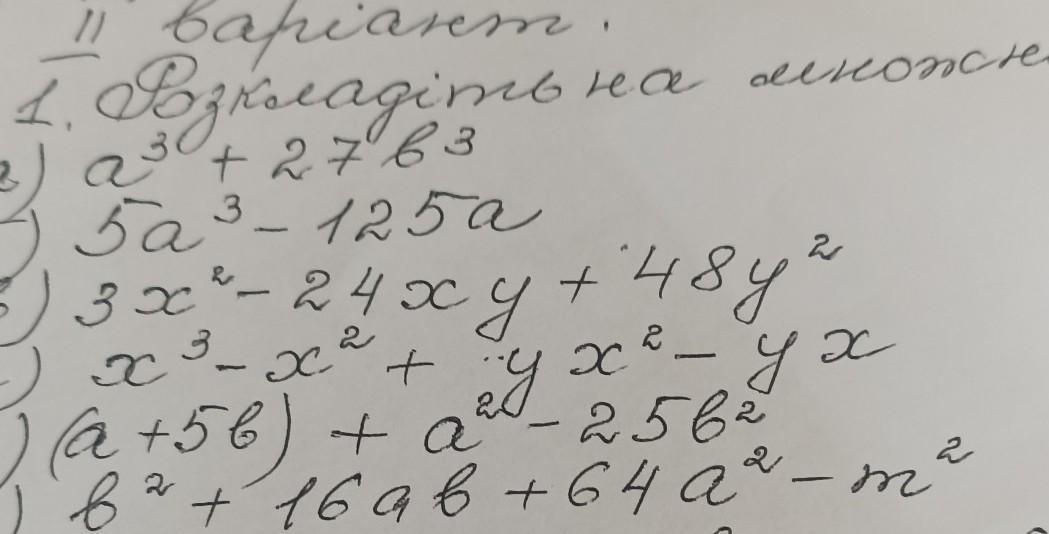 II варіант.
1. Розкладіть на множн
) a³ + 27b³
) 5a³ - 125a
) 3x² - 24xy + 48y²
) x³ - x² + yx² - yx
) (a + 5b) + a² - 25b²
) b² + 16ab + 64a² - m²